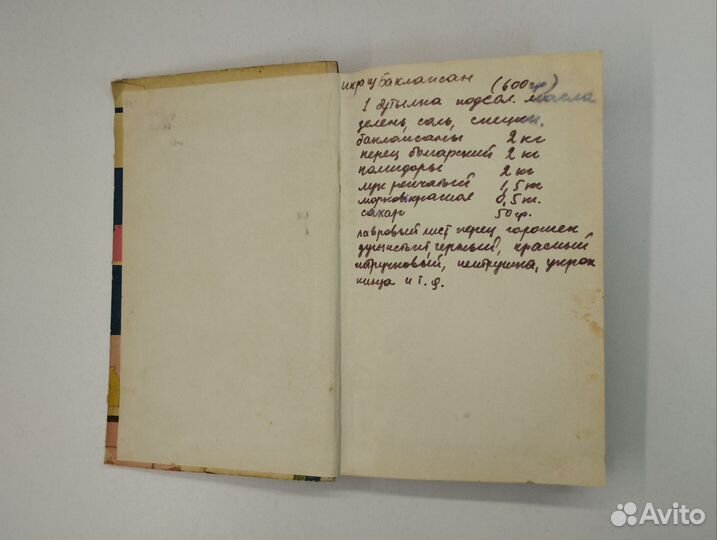 икра из Баклажан (600гр)
1 бутылка подсол. масла
зелень, соль, специи.
баклажаны 2 кг
перец болгарский 2 кг
помидоры 2 кг
лук репчатый 1,5 кг
морковь красная 0,5 кг.
сахар 50 гр.
лавровый лист, перец горошек,
душистый, черный, красный
стручковый, петрушка, укроп
кинза и т.д.
Avito